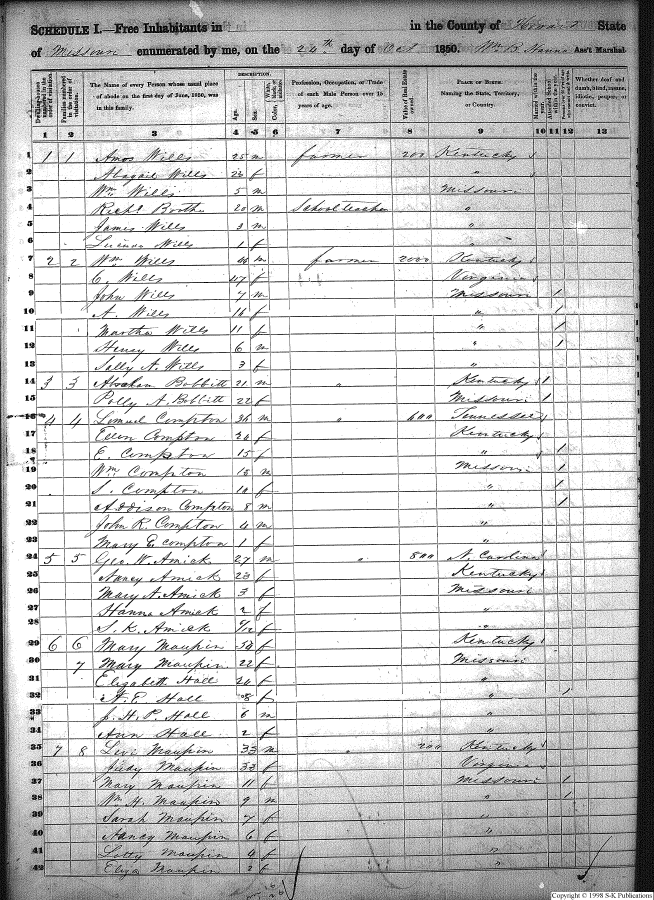 SCHEDULE I.—Free Inhabitants in in the County of Howard State
of Missouri enumerated by me, on the 24th day of Oct 1850. Wm B. Hanna Ass't Marshal.
Dwelling-houses numbered in the order of visitation.
Families numbered in the order of visitation.
The Name of every Person whose usual place of abode on the first day of June, 1850, was in this family.
DESCRIPTION.
Age.
Sex.
Color, White, black, or mulatto.
Profession, Occupation, or Trade of each Male Person over 15 years of age.
Value of Real Estate owned
PLACE OF BIRTH. Naming the State, Territory, or Country.
Married within the year.
Attended School within the year.
Whether deaf and dumb, blind, insane, idiotic, pauper, or convict.
1 2 3 4 5 6 7 8 9 10 11 12 13
1 1 1 Amos Wills 25 m farmer 200 Kentucky
2 Abagail Wills f "
3 Wm Wills 5 m Missouri
4 Richd Booth 20 m School teacher "
5 James Wills 3 m "
6 Wills 1 f "
7 2 2 Wm Wills m farmer 2000 Kentucky
8 C. Wills 47 f Virginia
9 John Wills 7 m Missouri 1
10 A. Wills 16 f " 1
11 Martha Wills 11 f " 1
12 Henry Wills 6 m " 1
13 Sally A. Wills 3 f "
14 3 3 Abraham Bobbitt 21 m " Kentucky 1
15 Polly A. Bobbitt 22 f Missouri 1
16 4 4 Lemuel Compton 36 m " 600 Tennessee
17 Ellen Compton f Kentucky
18 E. Compton 15 f " 1
19 Wm Compton m Missouri 1
20 S. Compton 10 f " 1
21 Addison Compton 8 m " 1
22 John R. Compton 4 m "
23 Mary E. Compton 1 f "
24 5 5 Geo. W. Amick 27 m " 800 N. Carolina
25 Nancy Amick 23 f Kentucky
26 Mary A. Amick 3 f Missouri
27 Hanna Amick 2 f "
28 S. K. Amick f "
29 6 6 Mary Maupin f Kentucky
30 7 Mary Maupin 22 f Missouri
31 Elizabeth Hall f "
32 A. E. Hall 8 f " 1
33 J. H. P. Hall 6 m "
34 Ann Hall 2 f "
35 7 8 Levi Maupin 33 m " 200 Kentucky
36 Judy Maupin 33 f Virginia
37 Mary Maupin 11 f Missouri 1
38 Wm H. Maupin 9 m " 1
39 Sarah Maupin 7 f "
40 Nancy Maupin 6 f "
41 Lotty Maupin 4 f "
42 Eliza Maupin 2 f "
Copyright © 1998 S-K Publications